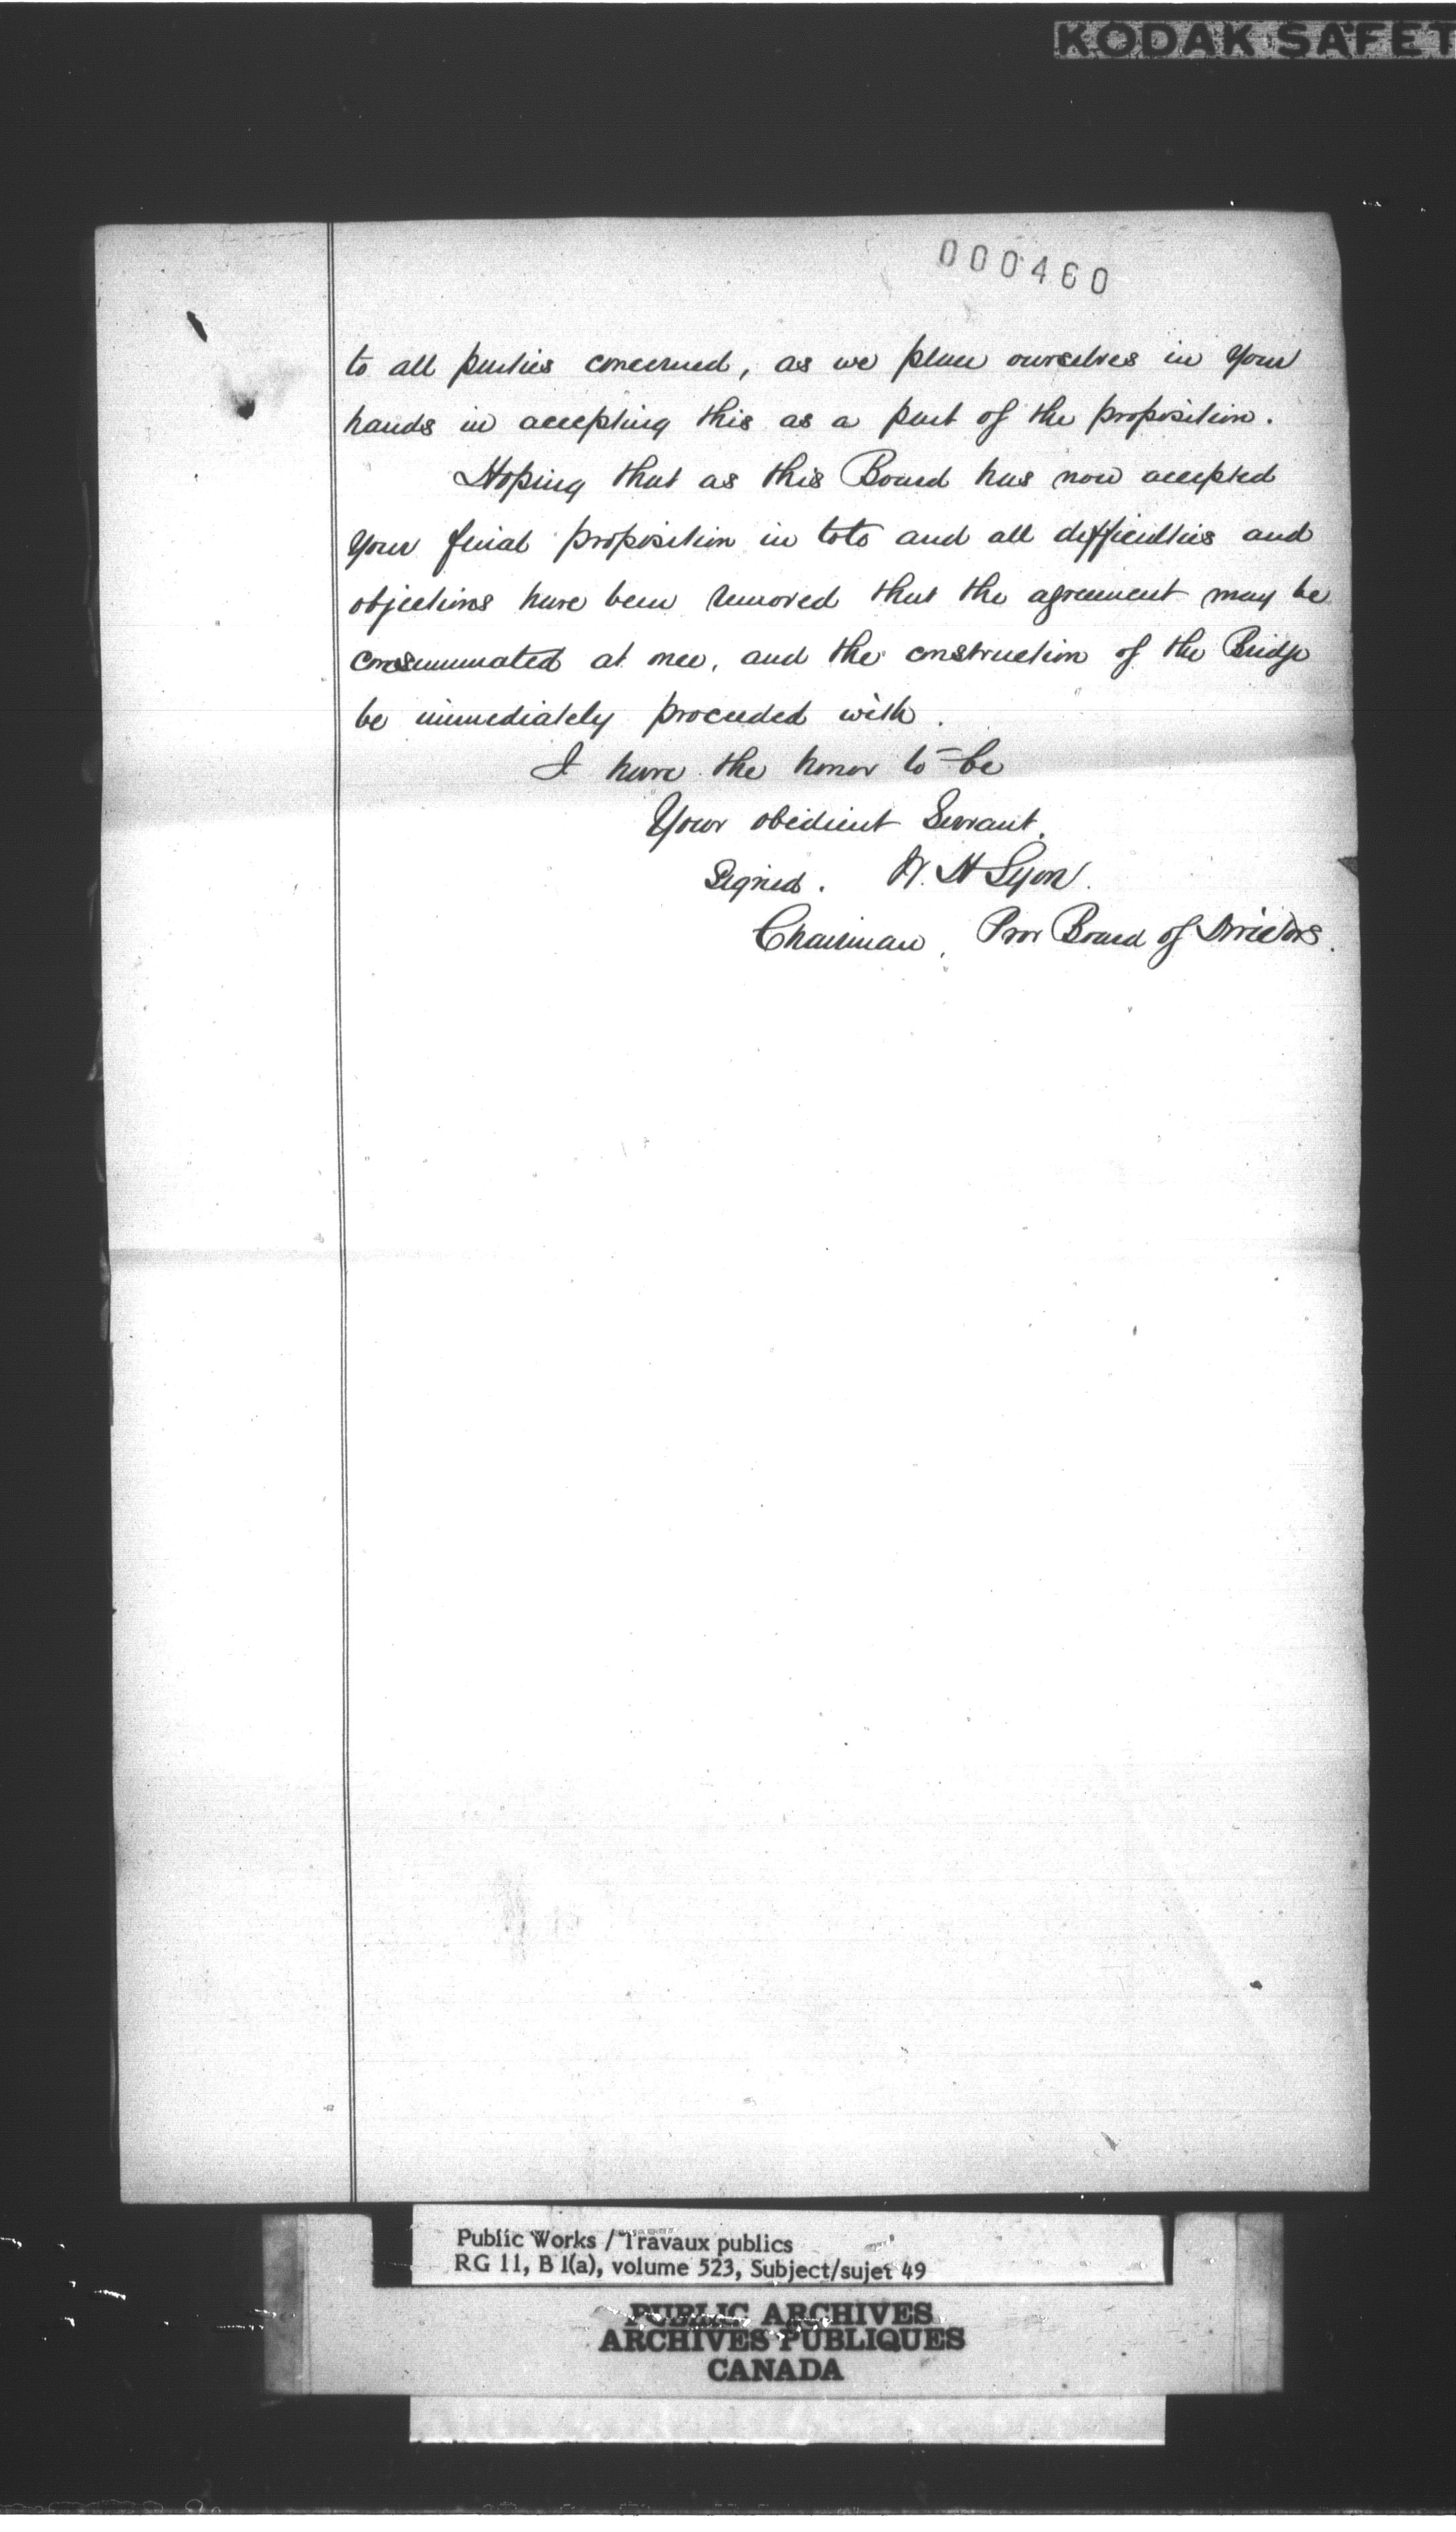 KODAK SAFET
000460
to all parties concerned, as we place ourselves in your
hands in accepting this as a part of the proposition.
Hoping that as this Board has now accepted
your final proposition in toto and all difficulties and
objections have been removed that the agreement may be
consummated at once, and the construction of the Bridge
be immediately proceeded with.
I have the honor to be
Your obedient Servant.
Signed. W. H Lyon.
Chairman, Prov Board of Directors.
Public Works / Travaux publics
RG 11, B 1(a), volume 523, Subject/sujet 49
PUBLIC ARCHIVES
ARCHIVES PUBLIQUES
CANADA